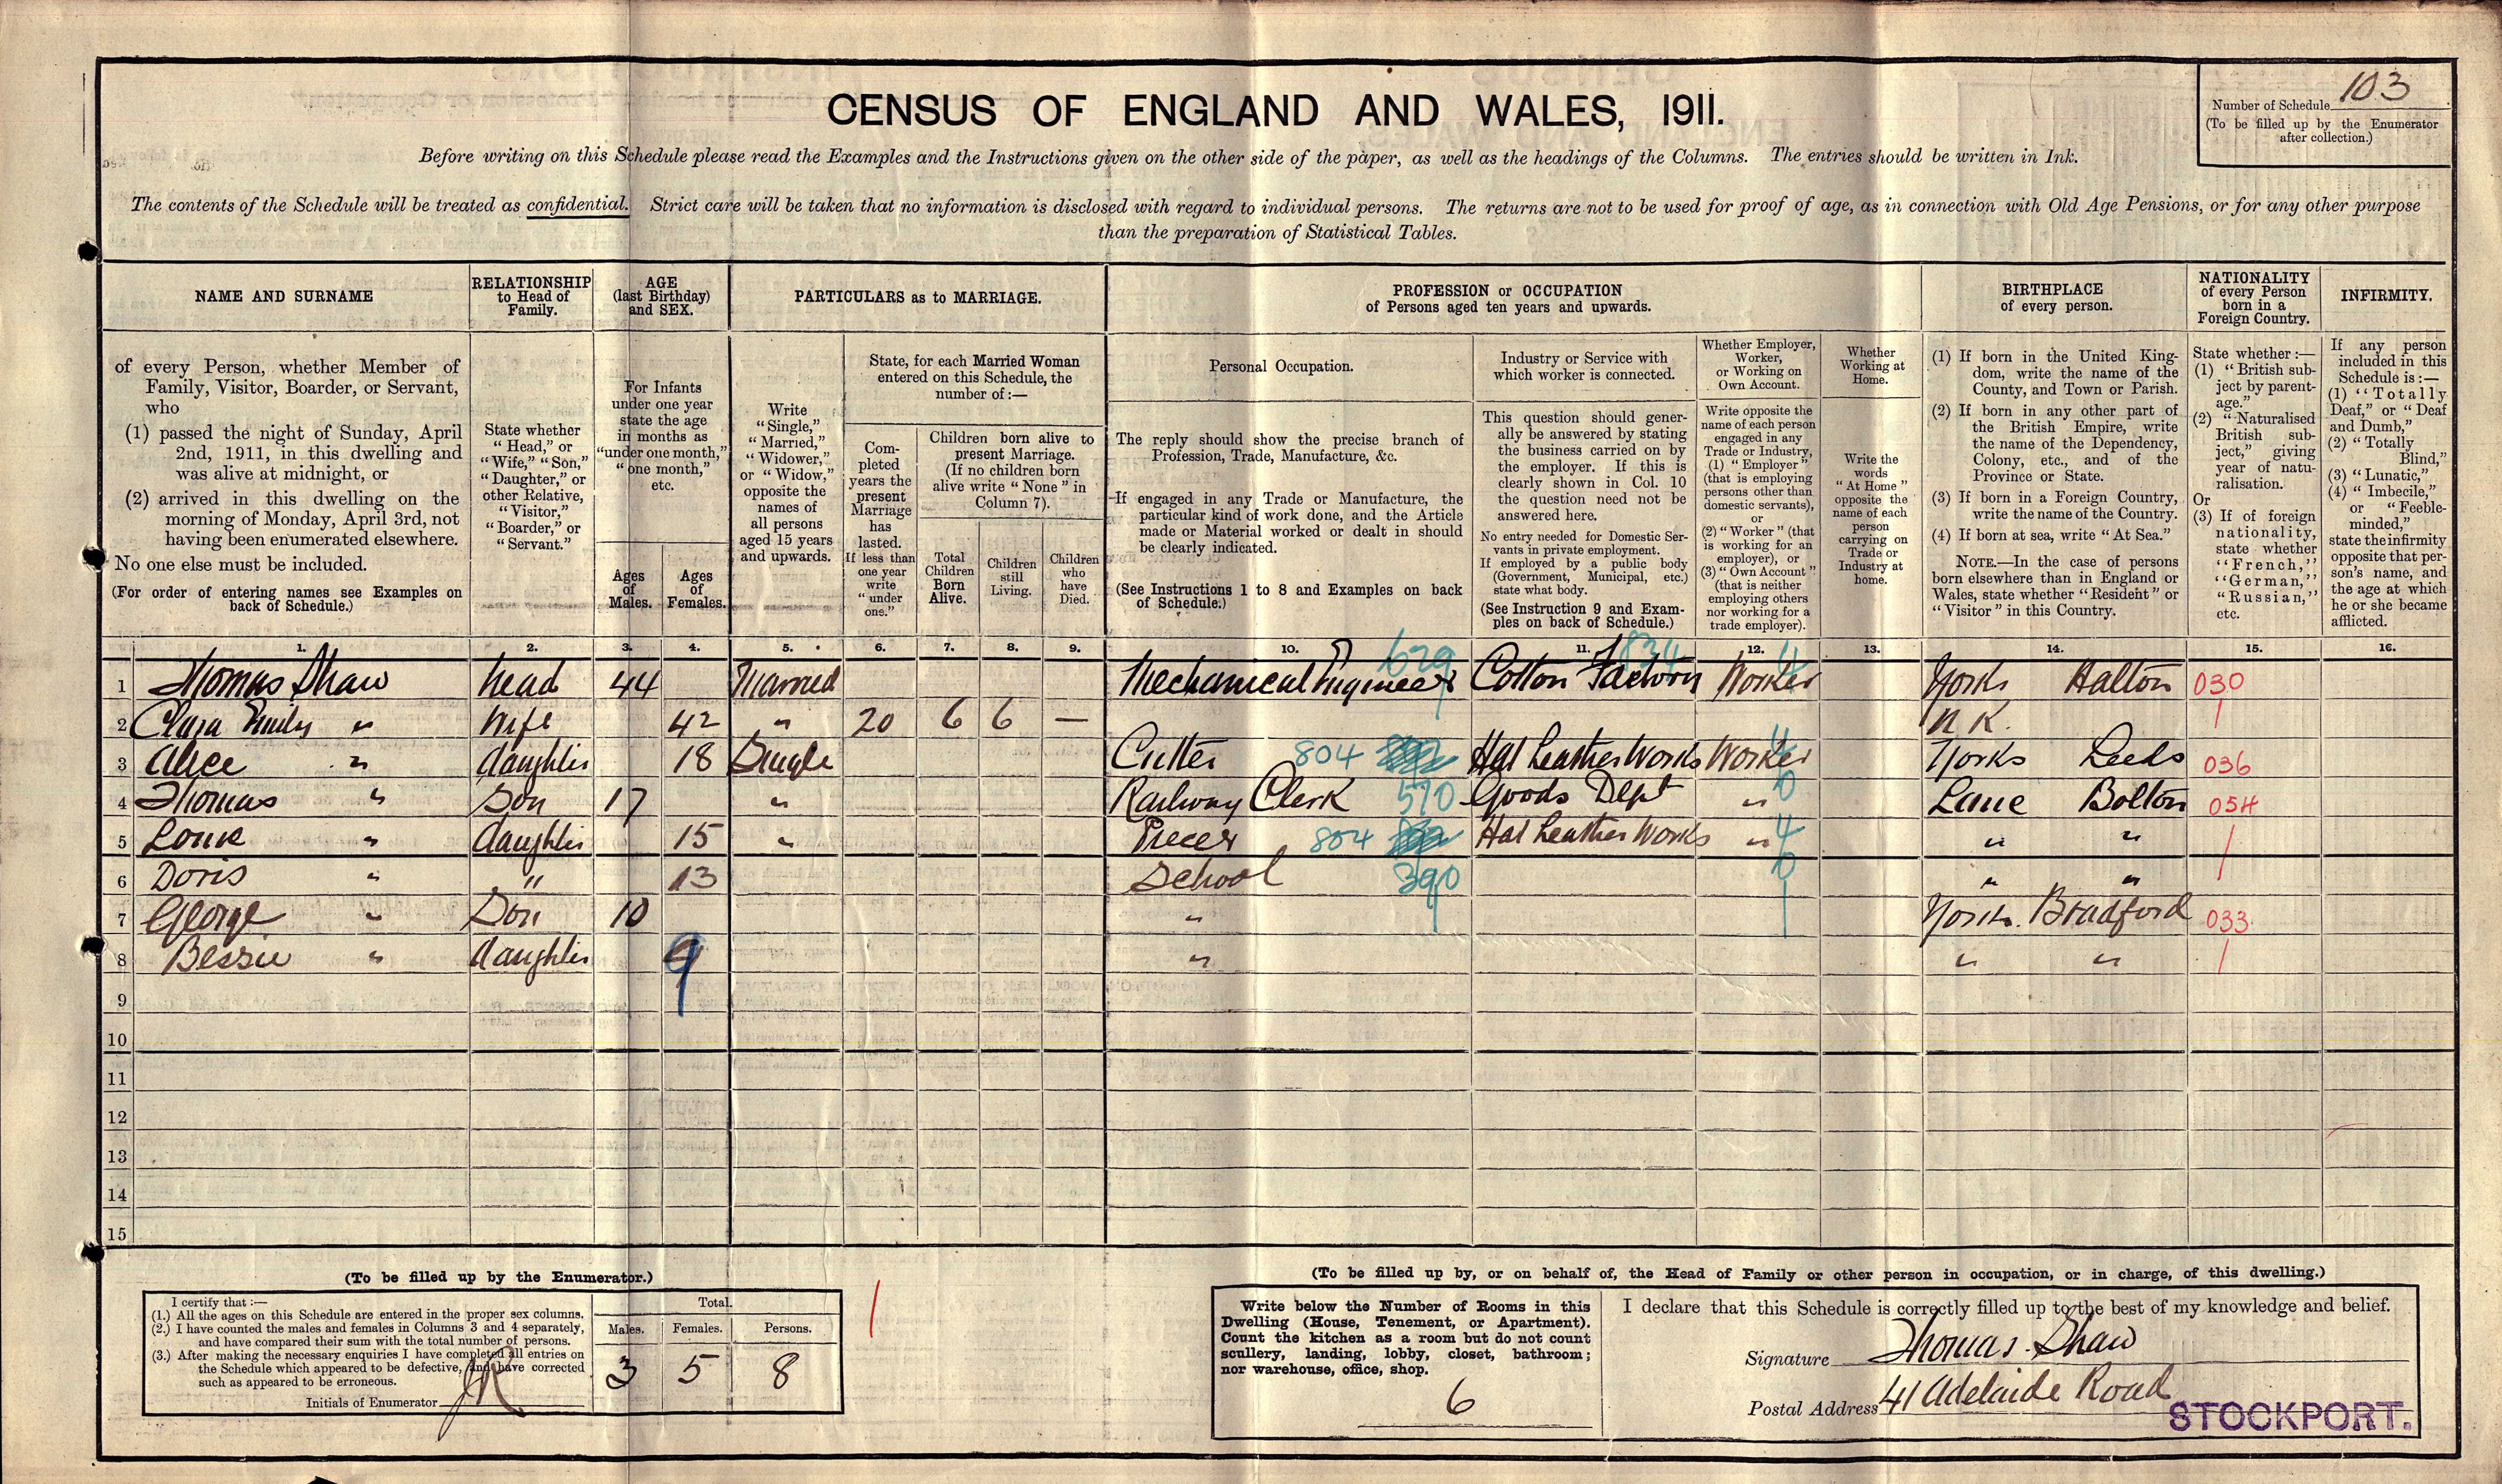 CENSUS OF ENGLAND AND WALES, 1911.
Number of Schedule 103
(To be filled up by the Enumerator
after collection.)
Before writing on this Schedule please read the Examples and the Instructions given on the other side of the paper, as well as the headings of the Columns. The entries should be written in Ink.
The contents of the Schedule will be treated as confidential. Strict care will be taken that no information is disclosed with regard to individual persons. The returns are not to be used for proof of age, as in connection with Old Age Pensions, or for any other purpose
than the preparation of Statistical Tables.
NAME AND SURNAME
RELATIONSHIP
to Head of
Family.
AGE
(last Birthday)
and SEX.
PARTICULARS as to MARRIAGE.
PROFESSION or OCCUPATION
of Persons aged ten years and upwards.
BIRTHPLACE
of every person.
NATIONALITY
of every Person
born in a
Foreign Country.
INFIRMITY.
of every Person, whether Member of
Family, Visitor, Boarder, or Servant,
who
(1) passed the night of Sunday, April
2nd, 1911, in this dwelling and
was alive at midnight, or
(2) arrived in this dwelling on the
morning of Monday, April 3rd, not
having been enumerated elsewhere.
No one else must be included.
(For order of entering names see Examples on
back of Schedule.)
State whether
"Head," or
"Wife," "Son,"
"Daughter," or
other Relative,
"Visitor,"
"Boarder," or
"Servant."
For Infants
under one year
state the age
in months as
"under one month,"
"one month,"
etc.
Ages
of
Males.
Ages
of
Females.
Write
"Single,"
"Married,"
"Widower,"
or "Widow,"
opposite the
names of
all persons
aged 15 years
and upwards.
State, for each Married Woman
entered on this Schedule, the
number of:—
Com-
pleted
years the
present
Marriage
has
lasted.
If less than
one year
write
"under
one."
Children born alive to
present Marriage.
(If no children born
alive write "None" in
Column 7).
Total
Children
Born
Alive.
Children
still
Living.
Children
who
have
Died.
Personal Occupation.
The reply should show the precise branch of
Profession, Trade, Manufacture, &c.
If engaged in any Trade or Manufacture, the
particular kind of work done, and the Article
made or Material worked or dealt in should
be clearly indicated.
(See Instructions 1 to 8 and Examples on back
of Schedule.)
Industry or Service with
which worker is connected.
This question should gener-
ally be answered by stating
the business carried on by
the employer. If this is
clearly shown in Col. 10
the question need not be
answered here.
No entry needed for Domestic Ser-
vants in private employment.
If employed by a public body
(Government, Municipal, etc.)
state what body.
(See Instruction 9 and Exam-
ples on back of Schedule.)
Whether Employer,
Worker,
or Working on
Own Account.
Write opposite the
name of each person
engaged in any
Trade or Industry,
(1) "Employer"
(that is employing
persons other than
domestic servants),
or
(2) "Worker" (that
is working for an
employer), or
(3) "Own Account"
(that is neither
employing others
nor working for a
trade employer).
Whether
Working at
Home.
Write the
words
"At Home"
opposite the
name of each
person
carrying on
Trade or
Industry at
home.
(1) If born in the United King-
dom, write the name of the
County, and Town or Parish.
(2) If born in any other part of
the British Empire, write
the name of the Dependency,
Colony, etc., and of the
Province or State.
(3) If born in a Foreign Country,
write the name of the Country.
(4) If born at sea, write "At Sea."
NOTE.—In the case of persons
born elsewhere than in England or
Wales, state whether "Resident" or
"Visitor" in this Country.
State whether:—
(1) "British sub-
ject by parent-
age."
(2) "Naturalised
British sub-
ject," giving
year of natu-
ralisation.
Or
(3) If of foreign
nationality,
state whether
"French,"
"German,"
"Russian,"
etc.
If any person
included in this
Schedule is:—
(1) "Totally
Deaf," or "Deaf
and Dumb,"
(2) "Totally
Blind,"
(3) "Lunatic,"
(4) "Imbecile,"
or "Feeble-
minded,"
state the infirmity
opposite that per-
son's name, and
the age at which
he or she became
afflicted.
1. 2. 3. 4. 5. 6. 7. 8. 9. 10. 11. 12. 13. 14. 15. 16.
1 Thomas Shaw head 44 Married Mechanical Engineer 629 Cotton Factory 834 Worker 4 Yorks Halton 030
2 Clara Emily " Wife 42 " 20 6 6 — N.K.
3 Alice " daughter 18 Single Cutter 804 Hat Leather Works Worker 4 Yorks Leeds 036
4 Thomas " Son 17 " Railway Clerk 570 Goods Dept " 0 Lanc Bolton 054
5 Louie " daughter 15 " Piecer 804 Hat Leather Works " 4 " "
6 Doris " " 13 School 390 0 " "
7 George " Son 10 " Yorks. Bradford 033
8 Bessie " daughter 9 " " "
9
10
11
12
13
14
15
(To be filled up by the Enumerator.)
I certify that:—
(1.) All the ages on this Schedule are entered in the proper sex columns.
(2.) I have counted the males and females in Columns 3 and 4 separately,
and have compared their sum with the total number of persons.
(3.) After making the necessary enquiries I have completed all entries on
the Schedule which appeared to be defective, and have corrected
such as appeared to be erroneous.
Initials of Enumerator
Total.
Males. Females. Persons.
3 5 8
(To be filled up by, or on behalf of, the Head of Family or other person in occupation, or in charge, of this dwelling.)
Write below the Number of Rooms in this
Dwelling (House, Tenement, or Apartment).
Count the kitchen as a room but do not count
scullery, landing, lobby, closet, bathroom;
nor warehouse, office, shop.
6
I declare that this Schedule is correctly filled up to the best of my knowledge and belief.
Signature Thomas Shaw
Postal Address 41 Adelaide Road
STOCKPORT.